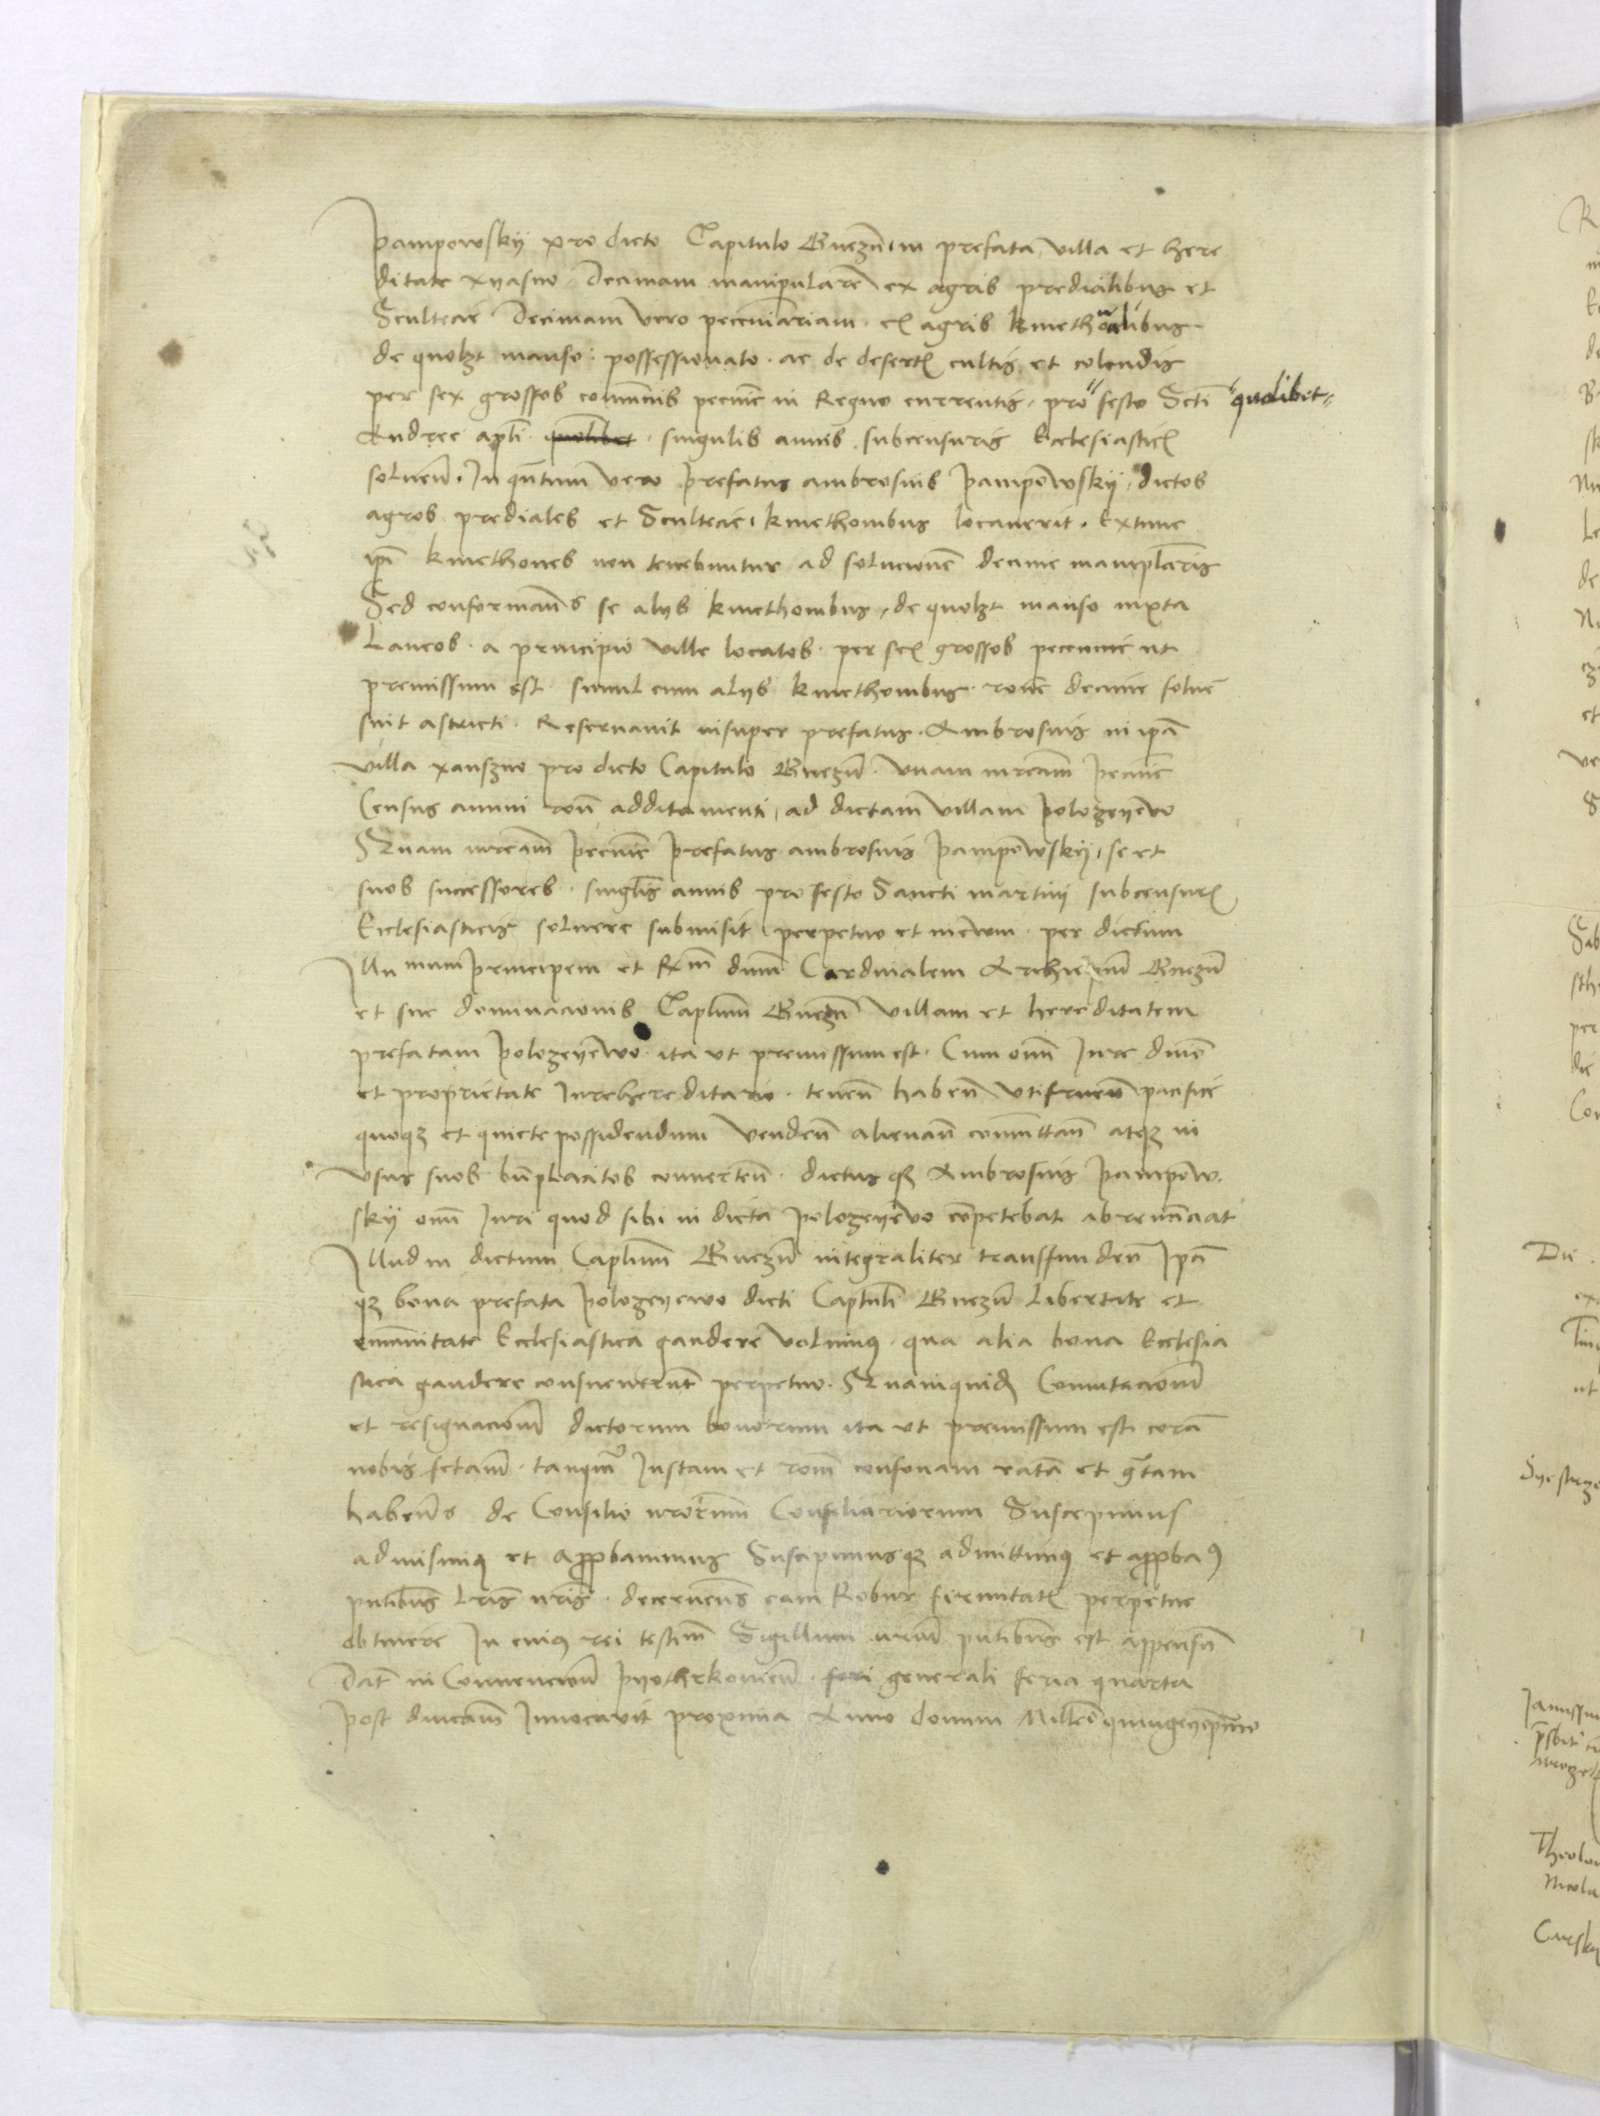 Pampowskij pro dicto Capitulo Gnezn in prefata villa et here
ditate xyasno Decimam manipularē ex agris predialibus et
Scultecie Decimam vero pecuniariam ex agris kmethonalibus
de quolzt manso possessionato ac de desert cultis et colendis
per sex grossos cōmunis pecunie in Regno currentis pro festo Scti quolibet
Andree apli quolibet singulis annis subcensuris Ecclesiastic
soluen̄. In quntum vero prefatus ambrosius Pampowskij dictos
agros prediales et Scultecie kmethonibus locauerit. Extunc
ipi kmethones non tenebuntur ad solucionē decime maniplaris
Sed conformans se alijs kmethonibus de quolzt manso iuxta
Laneos a principio ville locatos per sex grossos peccunie ut
premissum est simul cum alijs kmethonibus ronē decime soluē
sint astricti. Reseruauit insuper prefatus Ambrosius in ipā
villa xanszno pro dicto Capitulo Gnezn̄ Vnam mrcam pecunie
Census annui ron̄ additamenti ad dictam villam Pologyewo
Quam mrcam pecunie prefatus ambrosius Pampowskij se et
suos successores singlis annis pro festo Sancti martini subcensur
Ecclesiasticis soluere submisit perpetuo et in ewm per dictum
Illu mum principem et Rm̄ dnm̄ Cardinalem Archiepum̄ Gnezn̄
et sue dominacionis Caplum̄ Gnezn̄ villam et hereditatem
prefatam Pologyewo ita vt premissum est. Cum omī Iure dnīo
et proprietate Iurehereditario tenen̄ haben̄ vtifruen̄ pacifice
quoqz et quiete possidendum venden̄ alienan̄ cōmuttan̄ atqz in
vsus suos bn̄placitos conuerten̄. dictus qz Ambrosius Pampow
skij omī Iuri quod sibi in dicta Pologyewo cōpetebat abrenūciat
Illud in dictum Caplum̄ Gnezn̄ integraliter transfunden̄ Ipā
qz bona prefata Pologyewo dicti Captuli Gnezn̄ Libertate et
emūnitate Ecclesiastica gaudere volumus qua alia bona Ecclesia
stica gaudere consueuerunt perpetuo. Quamquid Comutacionē
et resignacionē dictorum bonorum ita vt premissum est corā
nobis fctam tanqm Iustam et ronī consonam ratā et grtam
habens de Consilio nrorum Consiliariorum Suscepimus
admisimus et approbauimus Suscipimusqz admittimus et approbamus
pntibus lris nris decernens eam Robur firmitatis perpetue
obtinere In cuius rei testim̄ Sigillum nrum pntibus est appensū
Dat̄ in Conuencione Pyothrkouien̄ generali feria quarta
post dnicam Inuocauit proxima Anno domini Millesimo quingentesimo